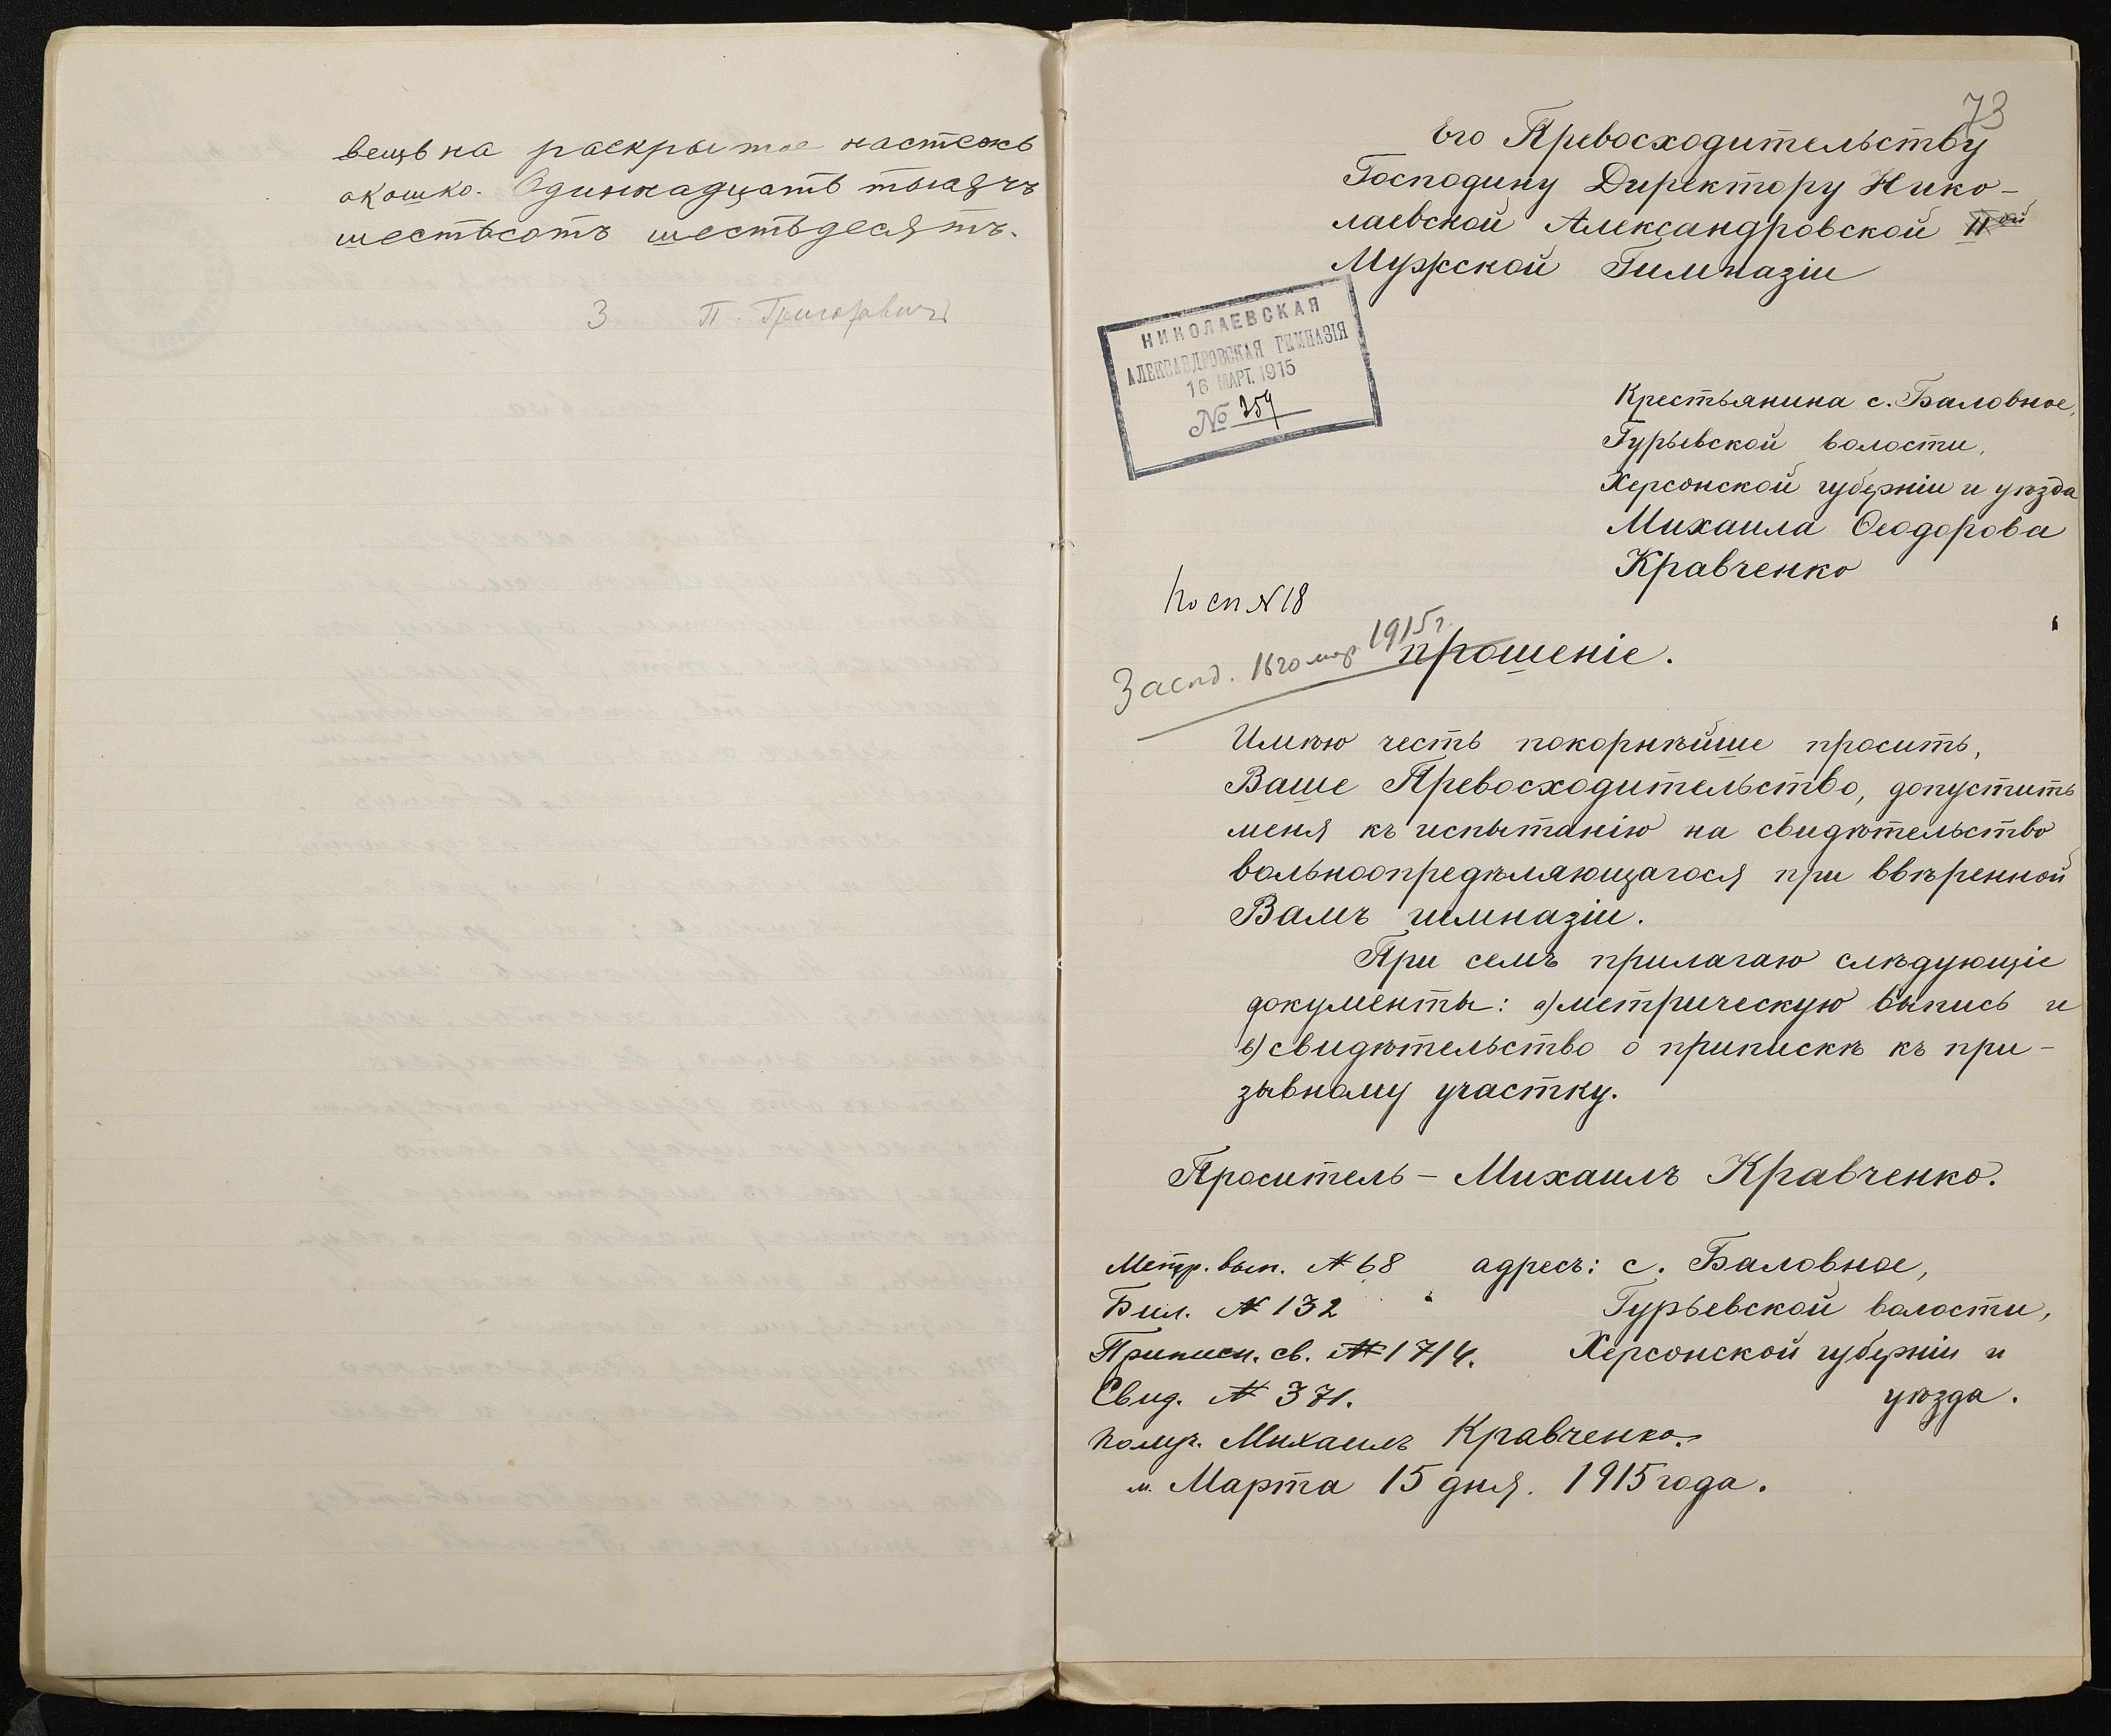 вещь на раскрытое настежь
окошко. Одинадцать тысячъ
шестьсотъ шестьдесятъ.
3 П. Григоровичъ
73
Его Превосходительству
Господину Директору Нико-
лаевской Александровской II ой
Мужской Гимназіи
НИКОЛАЕВСКАЯ
АЛЕКСАНДРОВСКАЯ ГИМНАЗІЯ
16 МАРТ. 1915
№ 259
Крестьянина с. Баловное,
Гурьевской волости,
Херсонской губерніи и уѣзда
Михаила Ѳеодорова
Кравченко
По сп № 18
16го мар. 1915 г.
прошеніе.
Имѣю честь покорнѣйше просить,
Ваше Превосходительство, допустить
меня къ испытанію на свидѣтельство
вольноопредѣляющагося при ввѣренной
Вамъ гимназіи.
При семъ прилагаю слѣдующіе
документы: а) метрическую выпись и
в) свидѣтельство о припискѣ къ при-
зывному участку.
Проситель – Михаилъ Кравченко.
Метр. вып. № 68 адресъ: с. Баловное,
Бил. № 132 Гурьевской волости,
Приписн. св. № 1714. Херсонской губерніи и
Свид. № 371. уѣзда.
Получ. Михаилъ Кравченко.
м. Марта 15 дня. 1915 года.